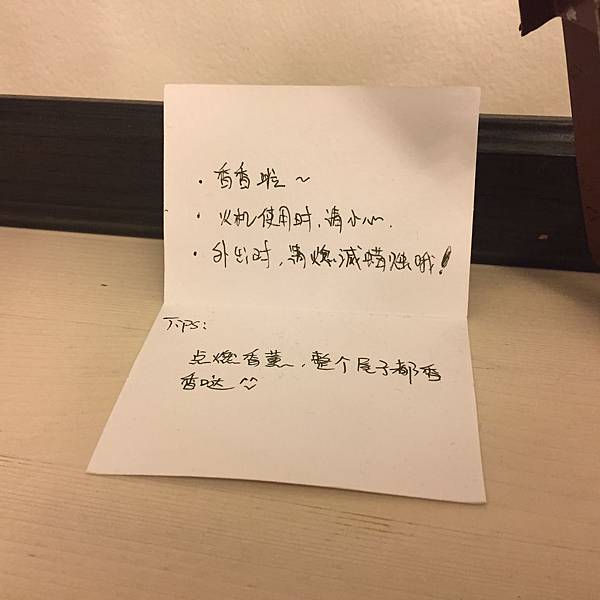 · 香香啦~
· 火机使用时,请小心.
· 外出时,需熄滅蜡烛哦!
Tips:
点燃香薰,整个屋子都香
香哒^^